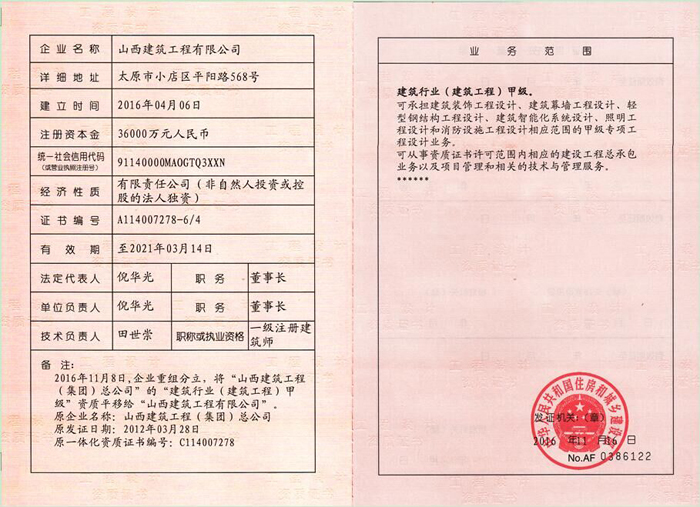 企业名称 山西建筑工程有限公司
详细地址 太原市小店区平阳路568号
建立时间 2016年04月06日
注册资本金 36000万元人民币
统一社会信用代码
(或营业执照注册号) 91140000MAOGTQ3XXN
经济性质 有限责任公司(非自然人投资或控
股的法人独资)
证书编号 A114007278-6/4
有效期 至2021年03月14日
法定代表人 倪华光 职务 董事长
单位负责人 倪华光 职务 董事长
技术负责人 田世崇 职称或执业资格 一级注册建
筑师
备注:
2016年11月8日,企业重组分立,将“山西建筑工程
(集团)总公司”的“建筑行业(建筑工程)甲
级”资质平移给“山西建筑工程有限公司”。
原企业名称:山西建筑工程(集团)总公司
原发证日期:2012年03月28日
原一体化资质证书编号:C114007278
业务范围
建筑行业(建筑工程)甲级。
可承担建筑装饰工程设计、建筑幕墙工程设计、轻
型钢结构工程设计、建筑智能化系统设计、照明工
程设计和消防设施工程设计相应范围的甲级专项工
程设计业务。
可从事资质证书许可范围内相应的建设工程总承包
业务以及项目管理和相关的技术与管理服务。
******
中华人民共和国住房和城乡建设部
发证机关:(章)
2016年11月16日
No.AF 0386122